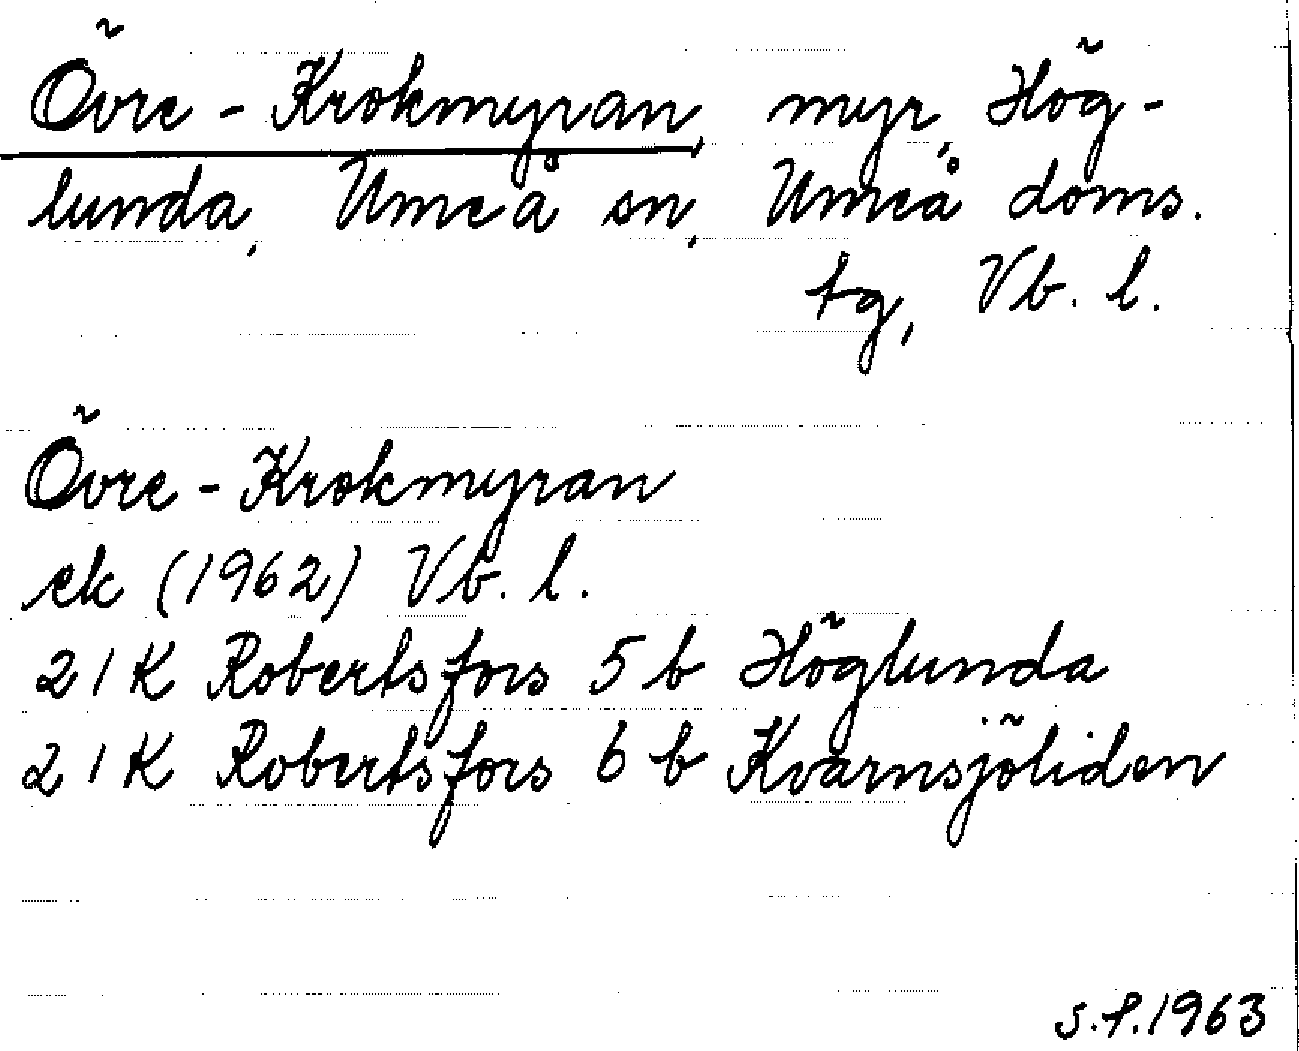 Övre-Krokmyran, myr, Hög-
lunda, Umeå sn, Umeå doms.
tg, Vb. l.
Övre-Krokmyran
ek (1962) Vb. l.
21K Robertsfors 5b Höglunda
21K Robertsfors 6b Kvarnsjöliden
S.P.1963